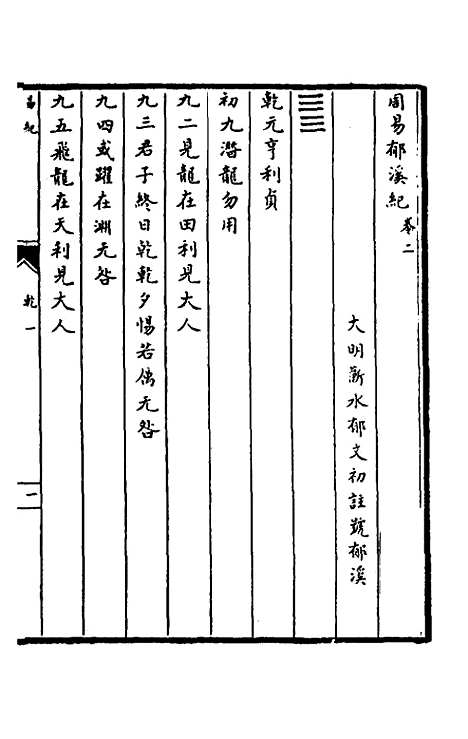 周易郁溪紀卷二
大明蘄水郁文初註號郁溪
䷀
乾元亨利貞
初九潛龍勿用
九二見龍在田利見大人
九三君子終日乾乾夕惕若厲无咎
九四或躍在淵无咎
九五飛龍在天利見大人
易紀
乾一
一